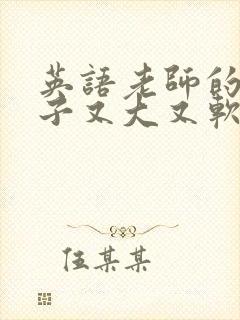 英語老師的
子又大又軟
伍某某